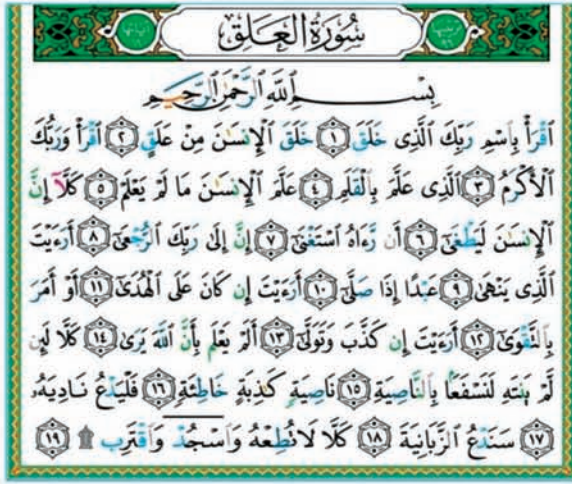 سُورَةُ الْعَلَقِ
بِسْمِ اللَّهِ الرَّحْمَٰنِ الرَّحِيمِ
ٱقْرَأْ بِٱسْمِ رَبِّكَ ٱلَّذِى خَلَقَ ١ خَلَقَ ٱلْإِنسَٰنَ مِنْ عَلَقٍ ٢ ٱقْرَأْ وَرَبُّكَ
ٱلْأَكْرَمُ ٣ ٱلَّذِى عَلَّمَ بِٱلْقَلَمِ ٤ عَلَّمَ ٱلْإِنسَٰنَ مَا لَمْ يَعْلَمْ ٥ كَلَّآ إِنَّ
ٱلْإِنسَٰنَ لَيَطْغَىٰٓ ٦ أَن رَّءَاهُ ٱسْتَغْنَىٰٓ ٧ إِنَّ إِلَىٰ رَبِّكَ ٱلرُّجْعَىٰٓ ٨ أَرَءَيْتَ
ٱلَّذِى يَنْهَىٰ ٩ عَبْدًا إِذَا صَلَّىٰٓ ١٠ أَرَءَيْتَ إِن كَانَ عَلَى ٱلْهُدَىٰٓ ١١ أَوْ أَمَرَ
بِٱلتَّقْوَىٰٓ ١٢ أَرَءَيْتَ إِن كَذَّبَ وَتَوَلَّىٰٓ ١٣ أَلَمْ يَعْلَم بِأَنَّ ٱللَّهَ يَرَىٰ ١٤ كَلَّا لَئِن
لَّمْ يَنتَهِ لَنَسْفَعًۢا بِٱلنَّاصِيَةِ ١٥ نَاصِيَةٍ كَٰذِبَةٍ خَاطِئَةٍ ١٦ فَلْيَدْعُ نَادِيَهُۥ
١٧ سَنَدْعُ ٱلزَّبَانِيَةَ ١٨ كَلَّا لَا تُطِعْهُ وَٱسْجُدْ وَٱقْتَرِب ۩ ١٩